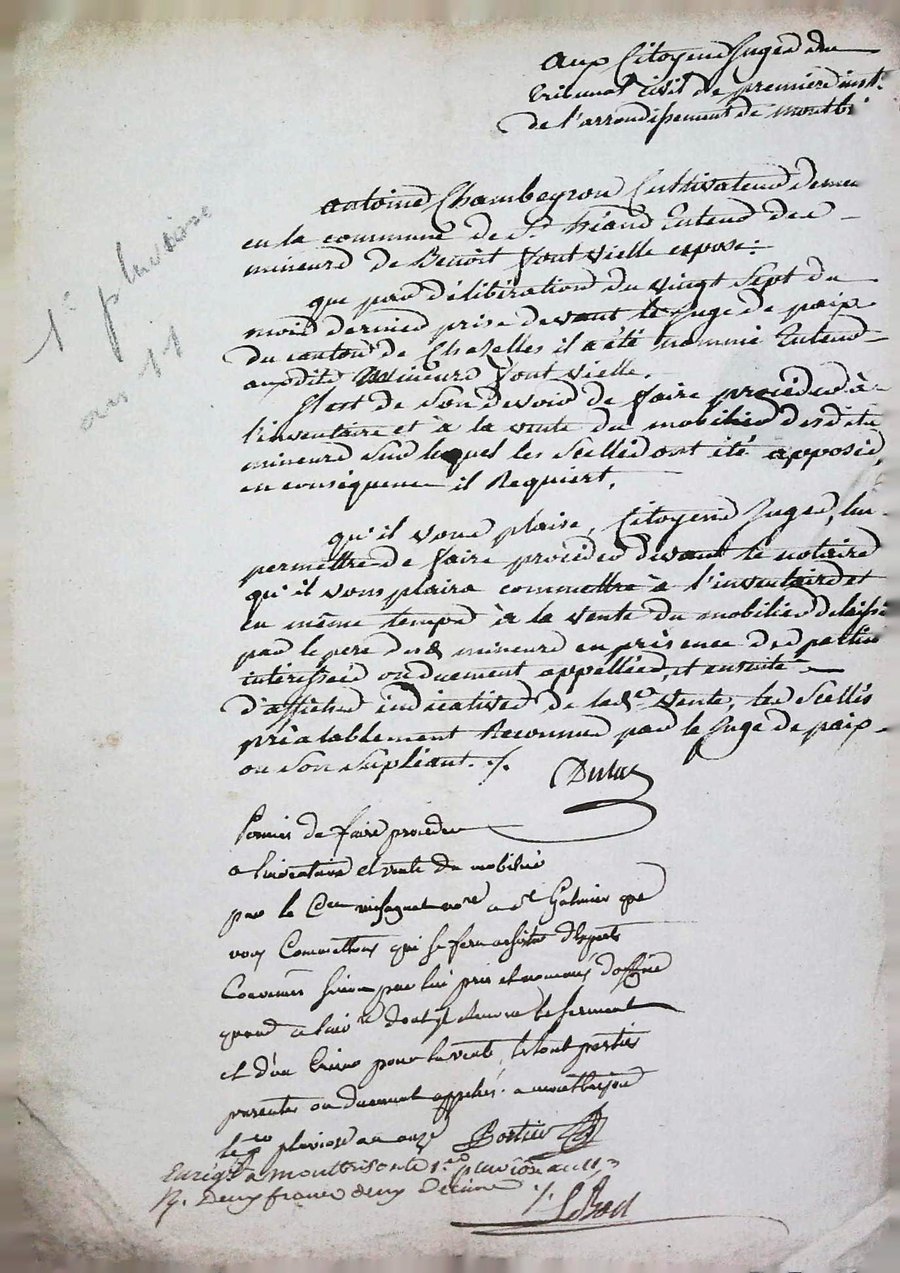 Aux Citoyens Juges du
tribunal civil de première inst.
de l'arrondissement de montb
1er pluviose
an 11
antoine Chambeyron Cultivateur demeu
en la commune de St héand tuteur des
mineurs de Benoit font vielle expose:
que par délibération du vingt sept du
mois dernier prise devant le Juge de paix
du canton de Chazelles il a été nommé tuteur
auxdits mineurs font vielle.
Il est de son devoir de faire procéder à
l'inventaire et à la vente du mobilier desdits
mineurs sur lequel les scellés ont été apposés,
en conséquence il Requiert,
qu'il vous plaise, Citoyens Juges, lui
permettre de faire procéder devant le notaire
qu'il vous plaira commettre à l'inventaire et
en même temps à la vente du mobilier délaissé
par le pere des mineurs en présence des parties
intéressées ou duement appellées, et ensuite
d'affiches indicatives de lade vente, les scellés
préalablement Reconnus par le Juge de paix
ou son supléant. ./.
Dulac
Permis de faire proceder
a linventaire et vente du mobilier
par le Cen nore a St Galmier que
nous Commettons qui se fera assister dexperts
par lui pris et nommés doffice
quand a dont le serment
et d'un Crieur pour la vente, le tout parties
presentes ou duement appelées. a montbrison
le 1er pluviose an onze
Enrégé a montbrison le 1er pluviose an 11
R. deux francs deux decimes ./.